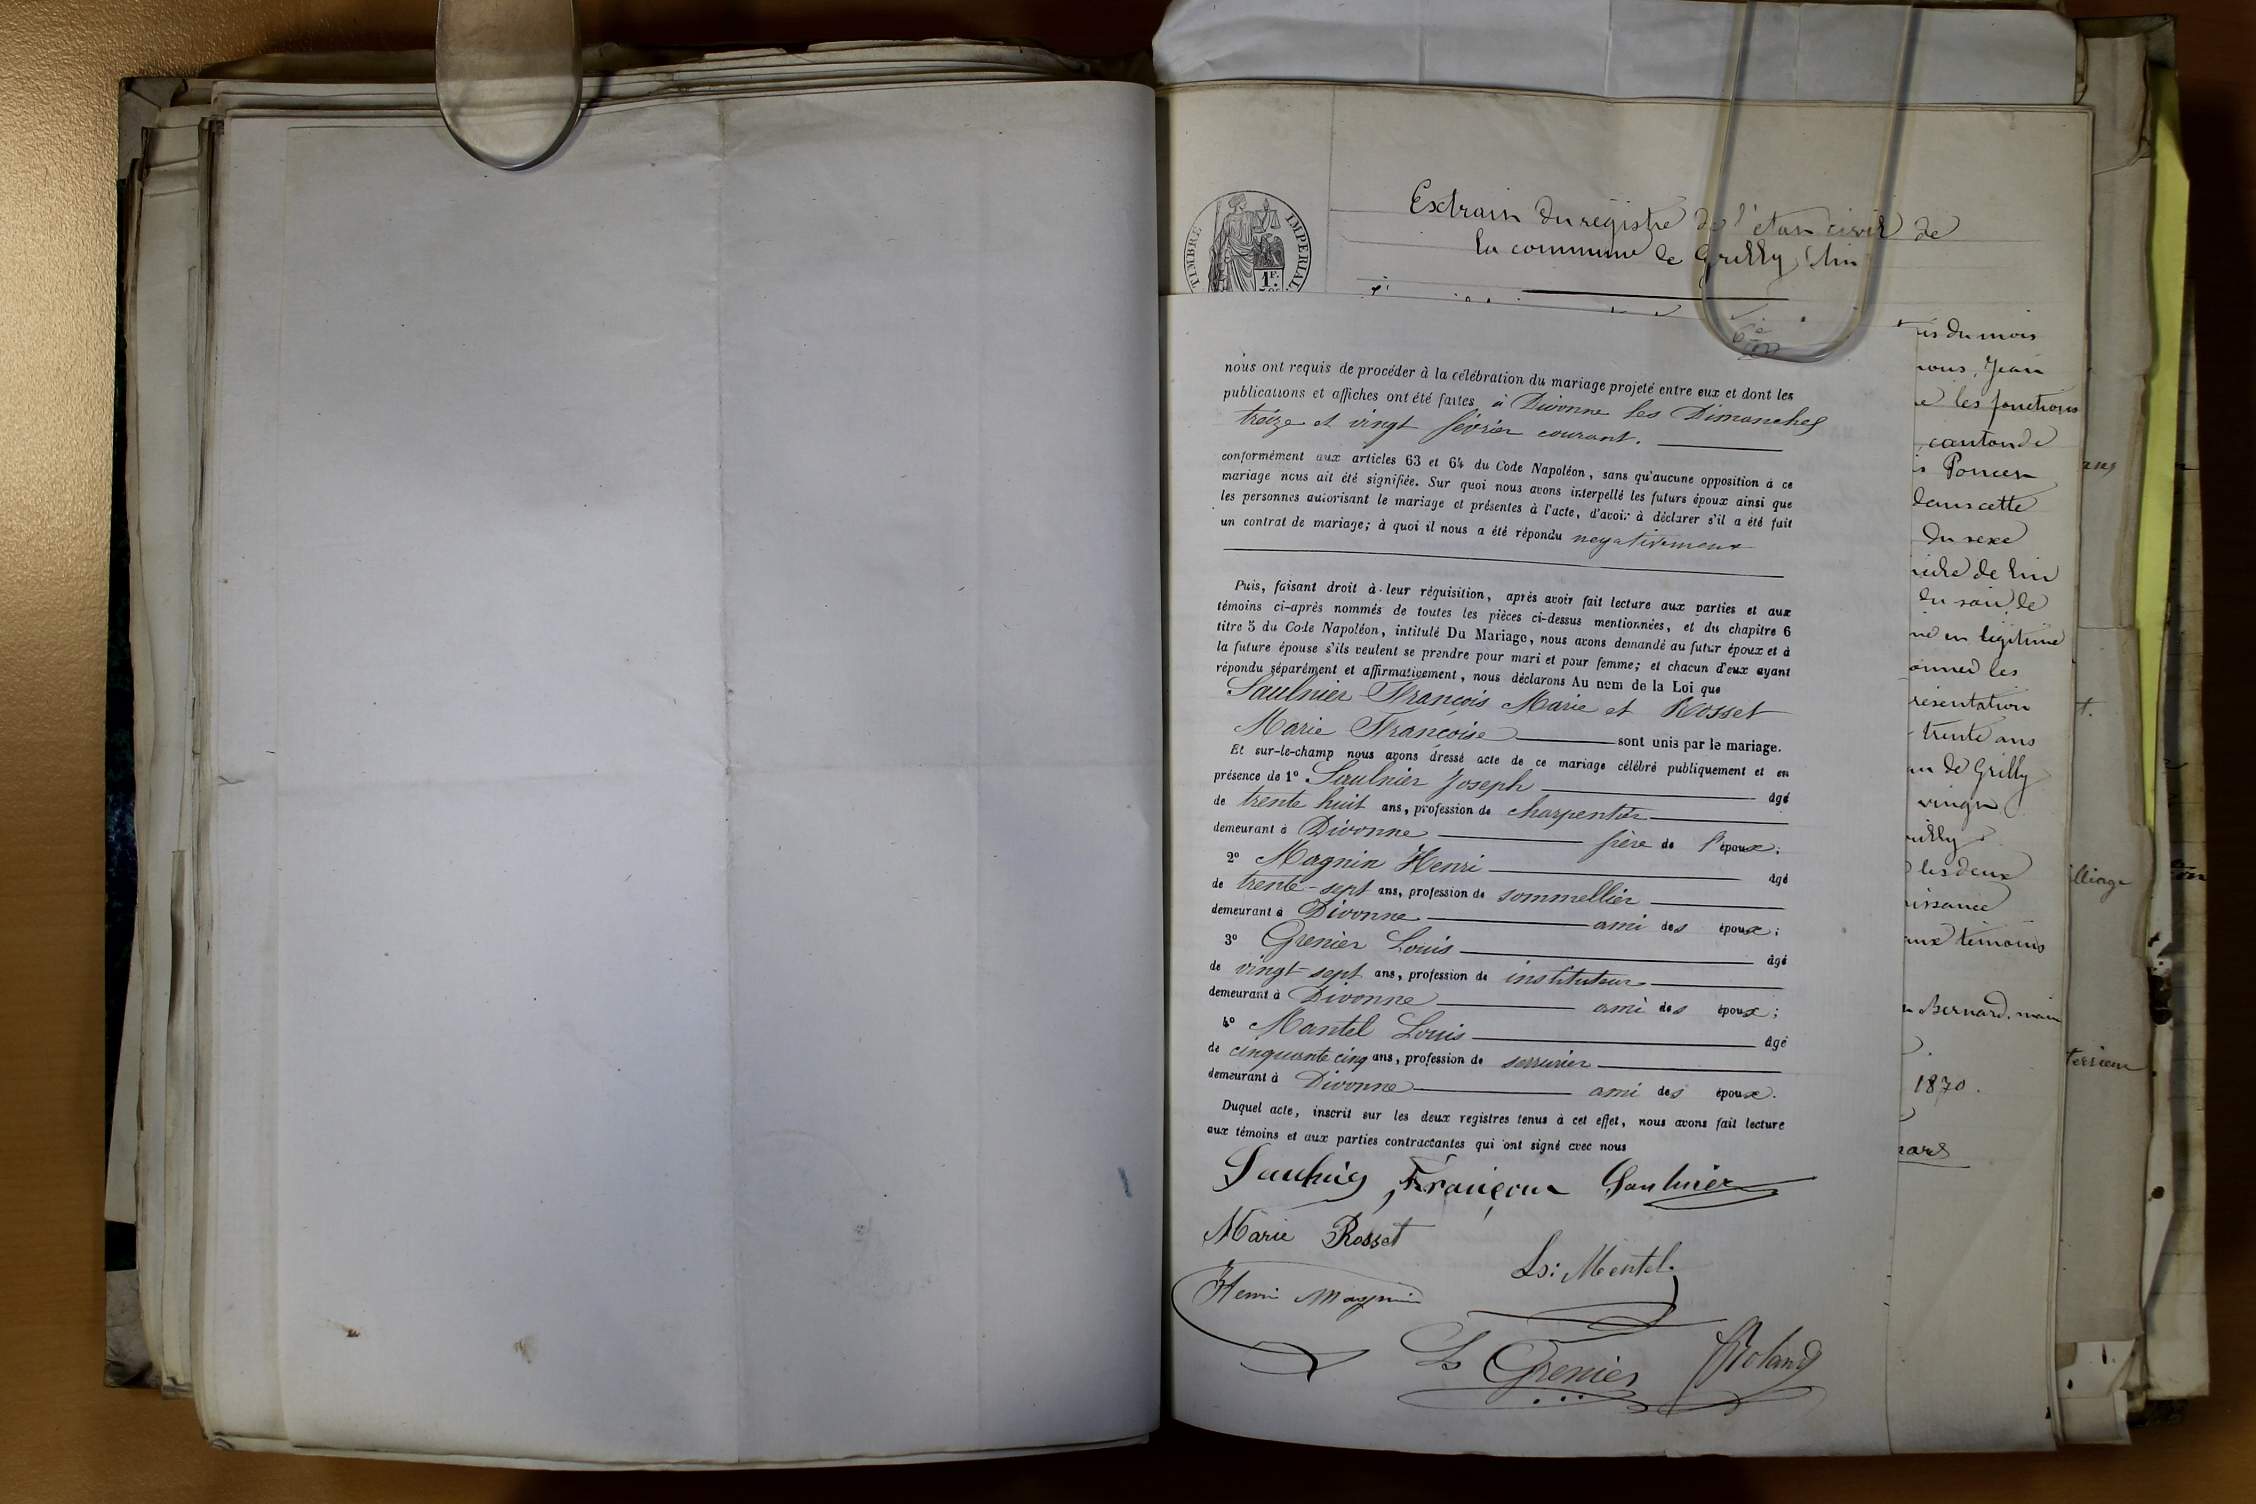 Extrait du registre de l'état civil de
la commune de Grilly (Ain
TIMBRE IMPERIAL
1F.
nous ont requis de procéder à la célébration du mariage projeté entre eux et dont les
publications et affiches ont été faites à Divonne les Dimanches
treize et vingt février courant.
conformément aux articles 63 et 64 du Code Napoléon, sans qu'aucune opposition à ce
mariage nous ait été signifiée. Sur quoi nous avons interpellé les futurs époux ainsi que
les personnes autorisant le mariage et présentes à l'acte, d'avoir à déclarer s'il a été fait
un contrat de mariage; à quoi il nous a été répondu négativement
Puis, faisant droit à leur réquisition, après avoir fait lecture aux parties et aux
témoins ci-après nommés de toutes les pièces ci-dessus mentionnées, et du chapitre 6
titre 5 du Code Napoléon, intitulé Du Mariage, nous avons demandé au futur époux et à
la future épouse s'ils veulent se prendre pour mari et pour femme; et chacun d'eux ayant
répondu séparément et affirmativement, nous déclarons Au nom de la Loi que
Saulnier François Marie et Rosset
Marie Françoise sont unis par le mariage.
Et sur-le-champ nous avons dressé acte de ce mariage célébré publiquement et en
présence de 1° Saulnier Joseph âgé
de trente huit ans, profession de charpentier
demeurant à Divonne frère de l'époux;
2° Magnin Henri âgé
de trente-sept ans, profession de sommellier
demeurant à Divonne ami des époux;
3° Grenier Louis âgé
de vingt-sept ans, profession de instituteur
demeurant à Divonne ami des époux;
4° Mantel Louis âgé
de cinquante cinq ans, profession de serrurier
demeurant à Divonne ami des époux.
Duquel acte, inscrit sur les deux registres tenus à cet effet, nous avons fait lecture
aux témoins et aux parties contractantes qui ont signé avec nous
Saulnier François Saulnier
Marie Rosset
Ls: Mentel
Henri Magnin
Ls Grenier Roland
is du mois
nous, Jean
e les fonctions
canton de
Poncet
dans cette
du sexe
du soir, le
en légitime
les
résentation
trente ans
de Grilly
vingt
les deux
aissance
aux témoins
Bernard, maire
1870.
illiage